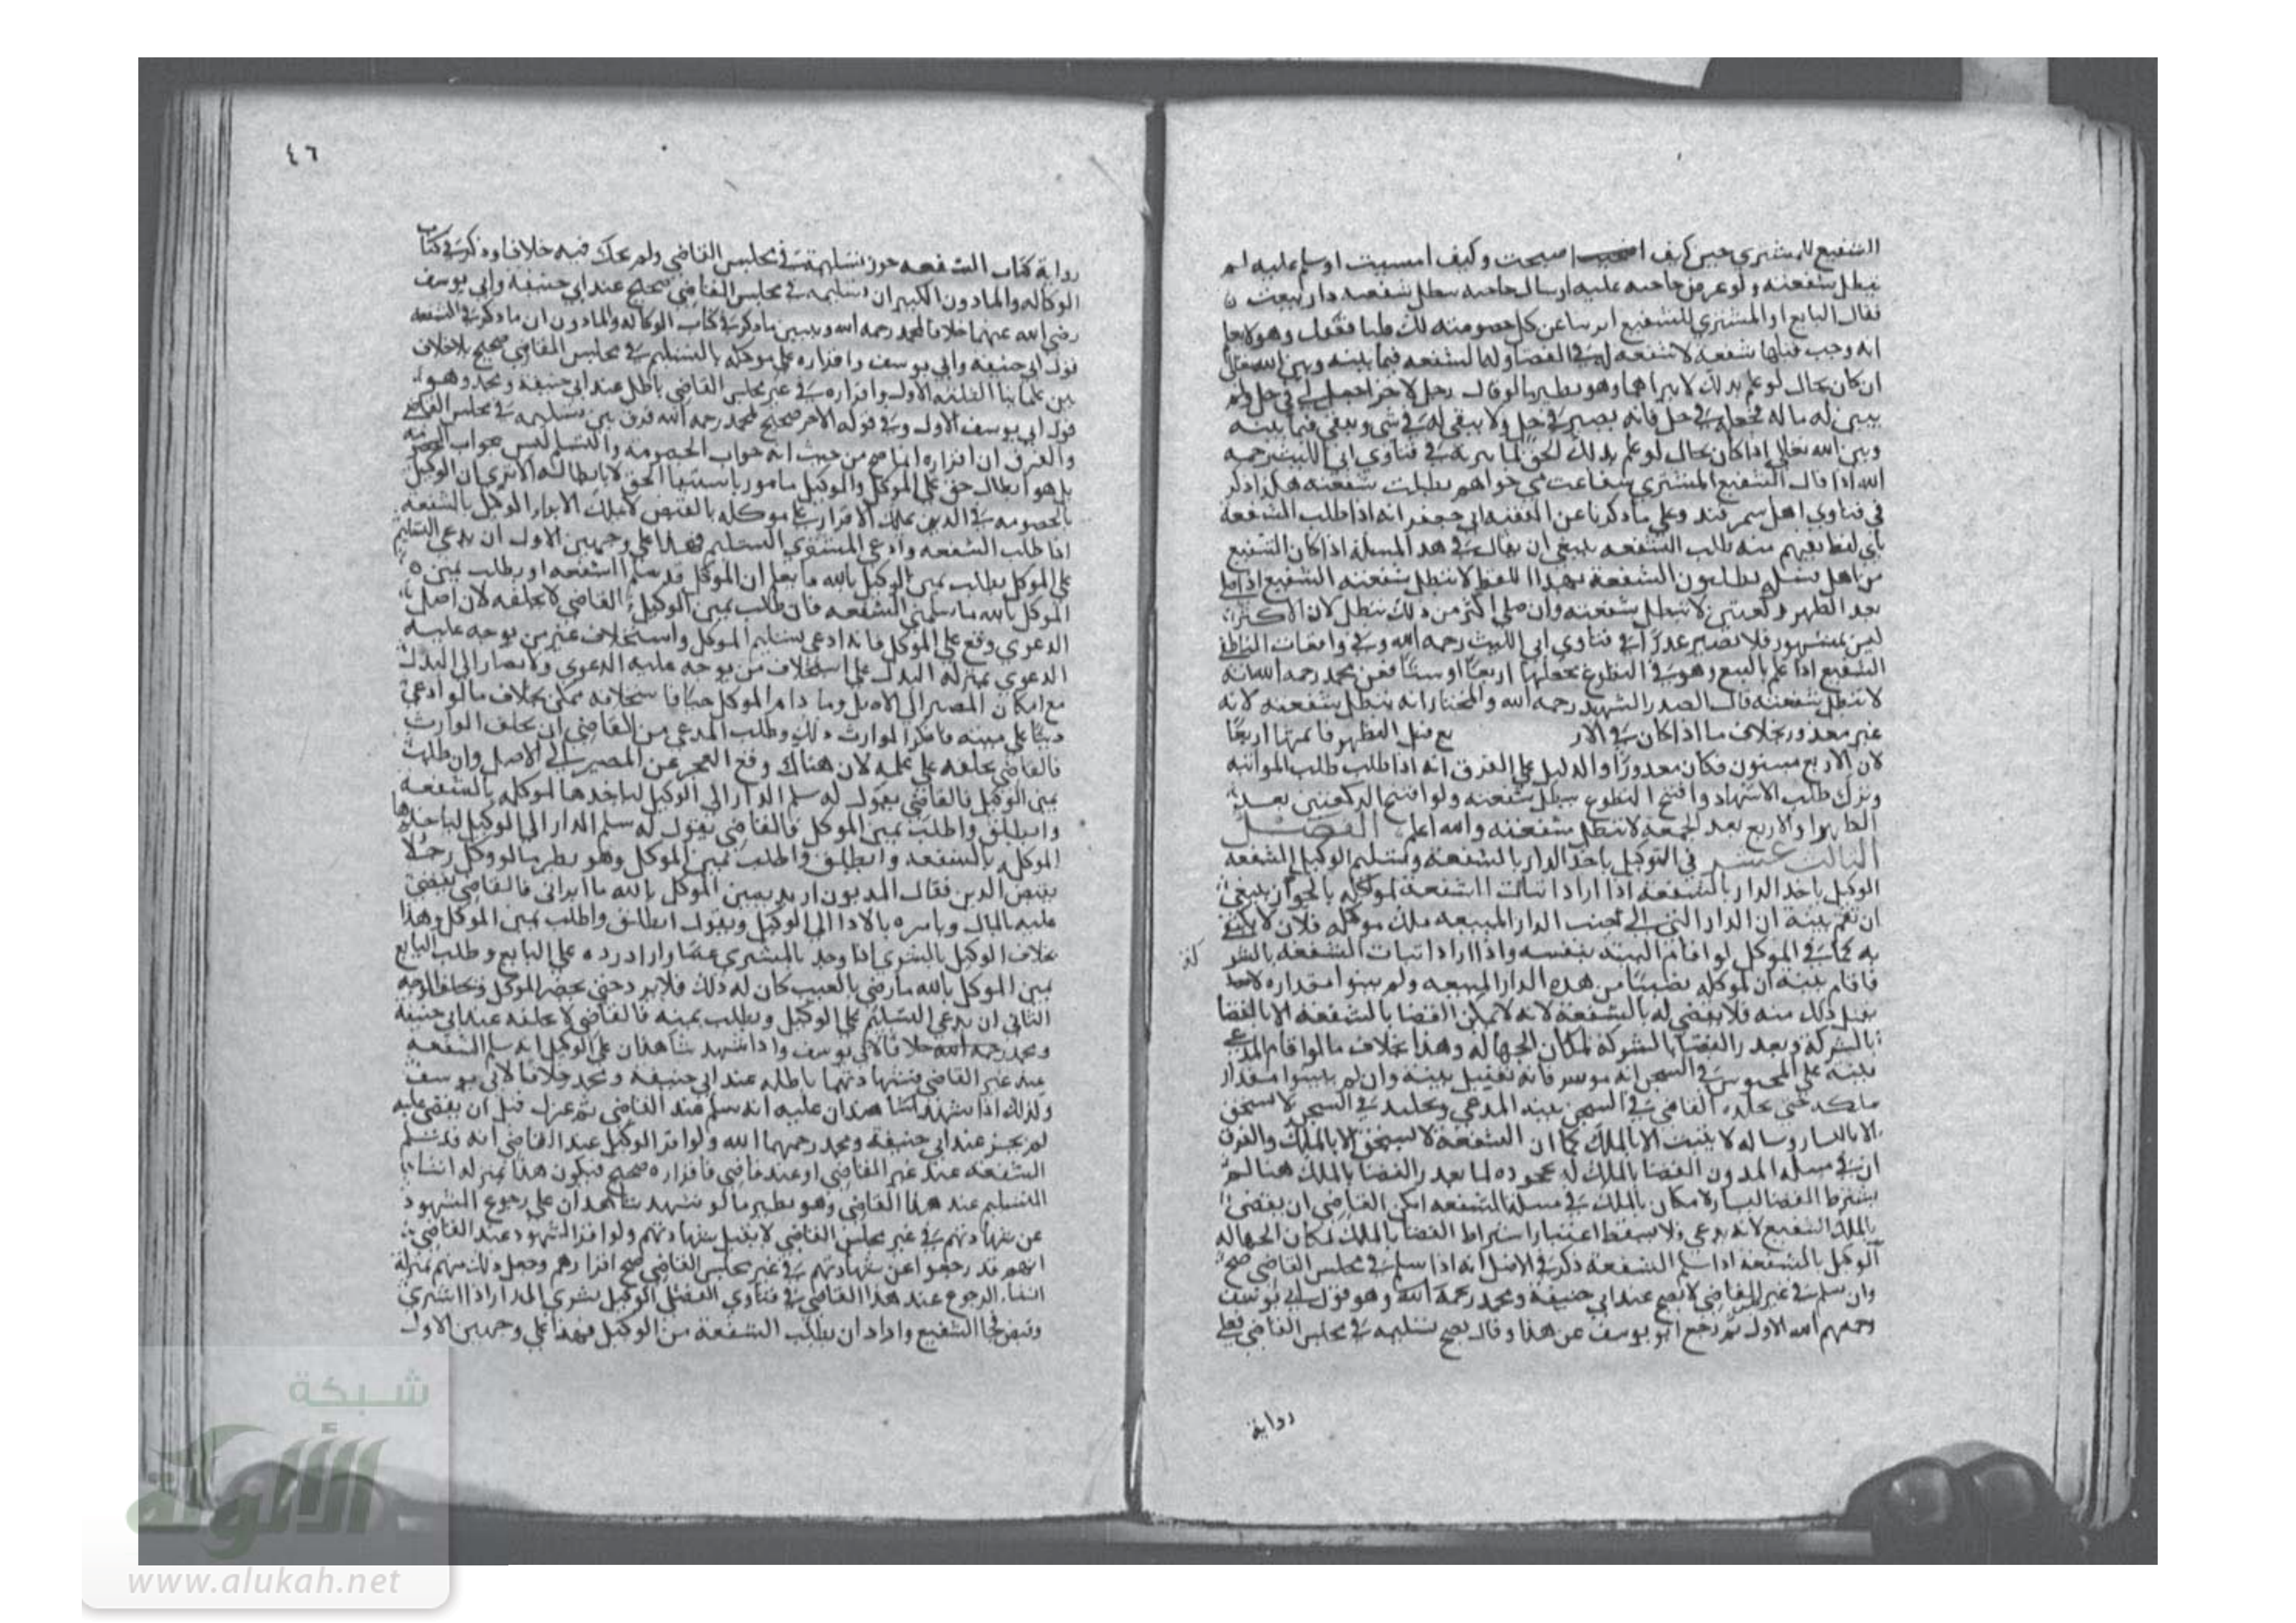 الشفيع للمشتري حين كيف اصبحت وكيف امسيت او سلم عليه لم
تبطل شفعته ولو عرض حاجته عليه او سال حاجته تبطل شفعته دار بيعت
فقال البايع او المشتري للشفيع ابرنا عن كل خصومة لك قبلنا ففعل وهو لا يعلم
انه وجب قبلها شفعة لا شفعة له في القضا وله الشفعه فيما بينه وبين الله تعالى
ان كان بحال لو علم بذلك لا يبراهما وهو نظير ما لو قال رجل لاخر اجعلني في حل ولم
يبين له ماله فجعله في حل فانه يصير في حل ولا يبقى له شي ويبقى فيما بينه
وبين الله تعالى اذا كان بحال لو علم بذلك الحق لما ابراه في فتاوي ابي الليث رحمه
الله اذا قال الشفيع للمشتري شفاعت مي خواهم بطلت شفعته هكذا ذكر
في فتاوي اهل سمرقند وعلي ما ذكرنا عن الفقيه ابي جعفر انه اذا طلب الشفعة
باي لفظ يفهم منه طلب الشفعه ينبغي ان يقال في هذه المسلة اذا كان الشفيع
من اهل يطلبون الشفعة بهذا اللفظ لا تبطل شفعته الشفيع اذا صلى
بعد الظهر ركعتين لا تبطل شفعته وان صلى اكثر من ذلك تبطل لان الاكثر
ليس بمشهور فلا يصير عذرا في فتاوي ابي الليث رحمه الله وفي واقعات الناطفي
الشفيع اذا علم بالبيع وهو في التطوع فجعلها اربعا او ستا فعن محمد رحمه الله انه
لا تبطل شفعته قال الصدر الشهيد رحمه الله والمختار انه تبطل شفعته لانه
غير معذور بخلاف ما اذا كان في الار بع قبل الظهر فاتمها اربعا
لان الاربع مسنون فكان معذورا والدليل علي الفرق انه اذا طلب طلب المواثبه
وترك طلب الاشهاد وافتتح التطوع تبطل شفعته ولو افتتح الركعتين بعد
الظهر او الاربع بعد الجمعة لا تبطل شفعته والله اعلم الفصل
الثالث عشر في التوكيل باخذ الدار بالشفعة وتسليم الوكيل الشفعه
الوكيل باخذ الدار بالشفعه اذا اراد اثبات الشفعة لموكله بالجوار ينبغي
ان تقم بينة ان الدار التي الى جنب الدار المبيعه ملك موكله فلان لا يكتفى
به كما في الموكل لو اقام البينه بنفسه واذا اراد اثبات الشفعه بالشر كة
فاقام بينه ان لموكله نصيبا من هذه الدار المبيعه ولم يبينوا مقداره لا
يقبل ذلك منه فلا يقضي له بالشفعة لانه لا يمكن القضا بالشفعة الا بالقضا
بالشركة وتعذر القضا بالشركة لمكان الجهالة وهذا بخلاف ما لو اقام المدعي
بينة علي المحبوس في السجن انه موسر فانه تقبل بينته وان لم يبينوا مقدار
ملكه حتى يخلده القاضي في السجن ببينه المدعي وتخليد في السجن لا يستحق
الا باليسار ويساره لا يثبت الا بالملك كما ان الشفعة لا تستحق الا بالملك والفرق
ان في مسلة المديون القضا بالملك له بجحوده لما تعذر القضا بالملك هنا لم
يشترط للقضا اليسار لا مكان بالملك في مسلة الشفعه امكن القاضي ان يقضي
بالملك للشفيع لانه يدعي فلا يسقط اعتبار اشتراط القضا بالملك لمكان الجهالة
الوكيل بالشفعة اذا سلم الشفعة ذكر في الاصل انه اذا سلم في مجلس القاضي صح
وان سلم في غير القاضي لا يصح عند ابي حنيفة ومحمد رحمة الله وهو قول ابي يوسف
رحمهم الله الاول ثم رجع ابو يوسف عن هذا وقال يصح تسليمه في مجلس القاضي فعلي
رواية
٤٦
رواية كتاب الشفعه جوز تسليمه في مجلس القاضي ولم يحك فيه خلافا وذكر في كتاب
الوكاله والمادون الكبير ان تسليمه في مجلس القاضي صحيح عند ابي حنيفة وابي يوسف
رضي الله عنهما خلافا لمحمد رحمه الله ويتبين ما ذكر في كتاب الوكاله والمادون ان ما ذكر في الشفعه
قول ابي حنيفه وابي يوسف واقراره علي موكله بالتسليم في مجلس القاضي صحيح بلا خلاف
بين علماينا الثلثه الاول واقراره في غير مجلس القاضي باطل عند ابي حنيفة ومحمد وهو
قول ابي يوسف الاول وفي قوله الاخر صحيح لمحمد رحمه الله فرق بين تسليمه في مجلس القاضي
والفرق ان اقراره انما صح من حيث انه جواب الخصومة والتسليم ليس بجواب الخصومه
بل هو ابطال حق علي الموكل والوكيل مامور باستيفا الحق لا بابطاله الا تري ان الوكيل
بالخصومه في الدين يملك الاقرار علي موكله بالقبض لا يملك الابرا الوكيل بالشفعه
اذا طلب الشفعه وادعي المشتري التسليم فهذا علي وجهين الاول ان يدعي التسليم
علي الموكل يطلب يمين الوكيل بالله ما يعلم ان الموكل قد سلم الشفعه او يطلب يمين
الموكل بالله ما سلمتي الشفعه فان طلب يمين الوكيل القاضي لا يحلفه لان اصل
الدعوي وقع علي الموكل فانه ادعي تسليم الموكل واستحلاف غير من توجه عليه
الدعوي بمنزله البدل علي استحلاف من توجه عليه الدعوي ولا يصار الى البدل
مع امكان المصير الي الاصل وما دام الموكل حيا فاستحلافه ممكن بخلاف ما لو ادعي
دينا علي ميته فانكر الوارث ذلك وطلب المدعي من القاضي ان يحلف الوارث
فالقاضي يحلفه علي علمه لان هناك وقع العجز عن المصير الي الاصل وان طلب
يمين الوكيل فالقاضي يقول له سلم الدار الى الوكيل لياخذها لموكله بالشفعه
وانطلق واطلب يمين الموكل فالقاضي يقول له سلم الدار الى الوكيل لياخذها
الموكل بالشفعه وانطلق واطلب يمين الموكل وهو نظير ما لو وكل رجلا
بقبض الدين فقال المديون اريد يمين الموكل بالله ما ابراني فالقاضي يقضي
عليه بالمال ويامره بالادا الى الوكيل ويقول انطلق واطلب يمين الموكل وهذا
بخلاف الوكيل بالشري اذا وجد بالمشتري عيبا واراد رده علي البايع وطلب البايع
يمين الموكل بالله ما رضي بالعيب كان له ذلك فلا يرد حتى يحضر الموكل ويحلف الوجه
الثاني ان يدعي التسليم علي الوكيل ويطلب يمينه فالقاضي لا يحلفه عند ابي حنيفة
ومحمد رحمه الله خلافا لابي يوسف واذا شهد شاهدان علي الوكيل انه سلم الشفعه
عند غير القاضي فشهادتهما باطله عند ابي حنيفه ومحمد خلافا لابي يوسف
وكذلك اذا شهد شاهدان عليه انه سلم عند القاضي ثم عزل قبل ان يقضي عليه
لم يجز عند ابي حنيفة ومحمد رحمهما الله ولو اقر الوكيل عند القاضي انه قد سلم
الشفعه عند غير القاضي او عند قاضي فاقراره صحيح فيكون هذا بمنزلة انشاء
التسليم عند هذا القاضي وهو نظير ما لو شهد شاهدان على رجوع الشهود
عن شهادتهم في غير مجلس القاضي لا يقبل شهادتهم ولو اقر الشهود عند القاضي
انهم قد رجعوا عن شهادتهم في غير مجلس القاضي صح اقرارهم وجعل ذلك منهم بمنزلة
انشاء الرجوع عند هذا القاضي في فتاوي الفضلي الوكيل بشري الدار اذا اشتري
وقبض فجا الشفيع واراد ان يطلب الشفعة من الوكيل فهذا علي وجهين الاول
شبكة
الألوكة
www.alukah.net